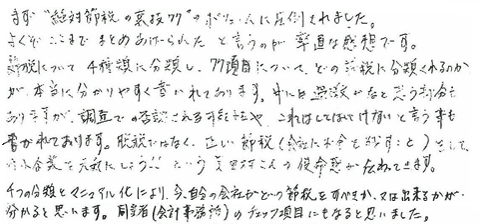 まず"絶対節税の裏技77"のボリュームに圧倒されました。
よくぞここまでまとめあげられたと言うのが率直な感想です。
節税について4種類に分類し、77項目について、どの節税に分類されるのか
が、本当に分かりやすく書いれております。中には過激かなと思う部分も
ありますが、調査で否認される可能性や、これはしてはいけないと言う事も
書かれております。脱税ではなく、正しい節税(会社にお金を残すこと)をして、
中小企業を元気にしよう!!という 使命感が伝わってきます。
4つの分類とマニュアル化により、今、自分の会社がどの節税をすべきか、又は出来るかが
分かると思います。同業者(会計事務所)のチェック項目にもなると思いました。